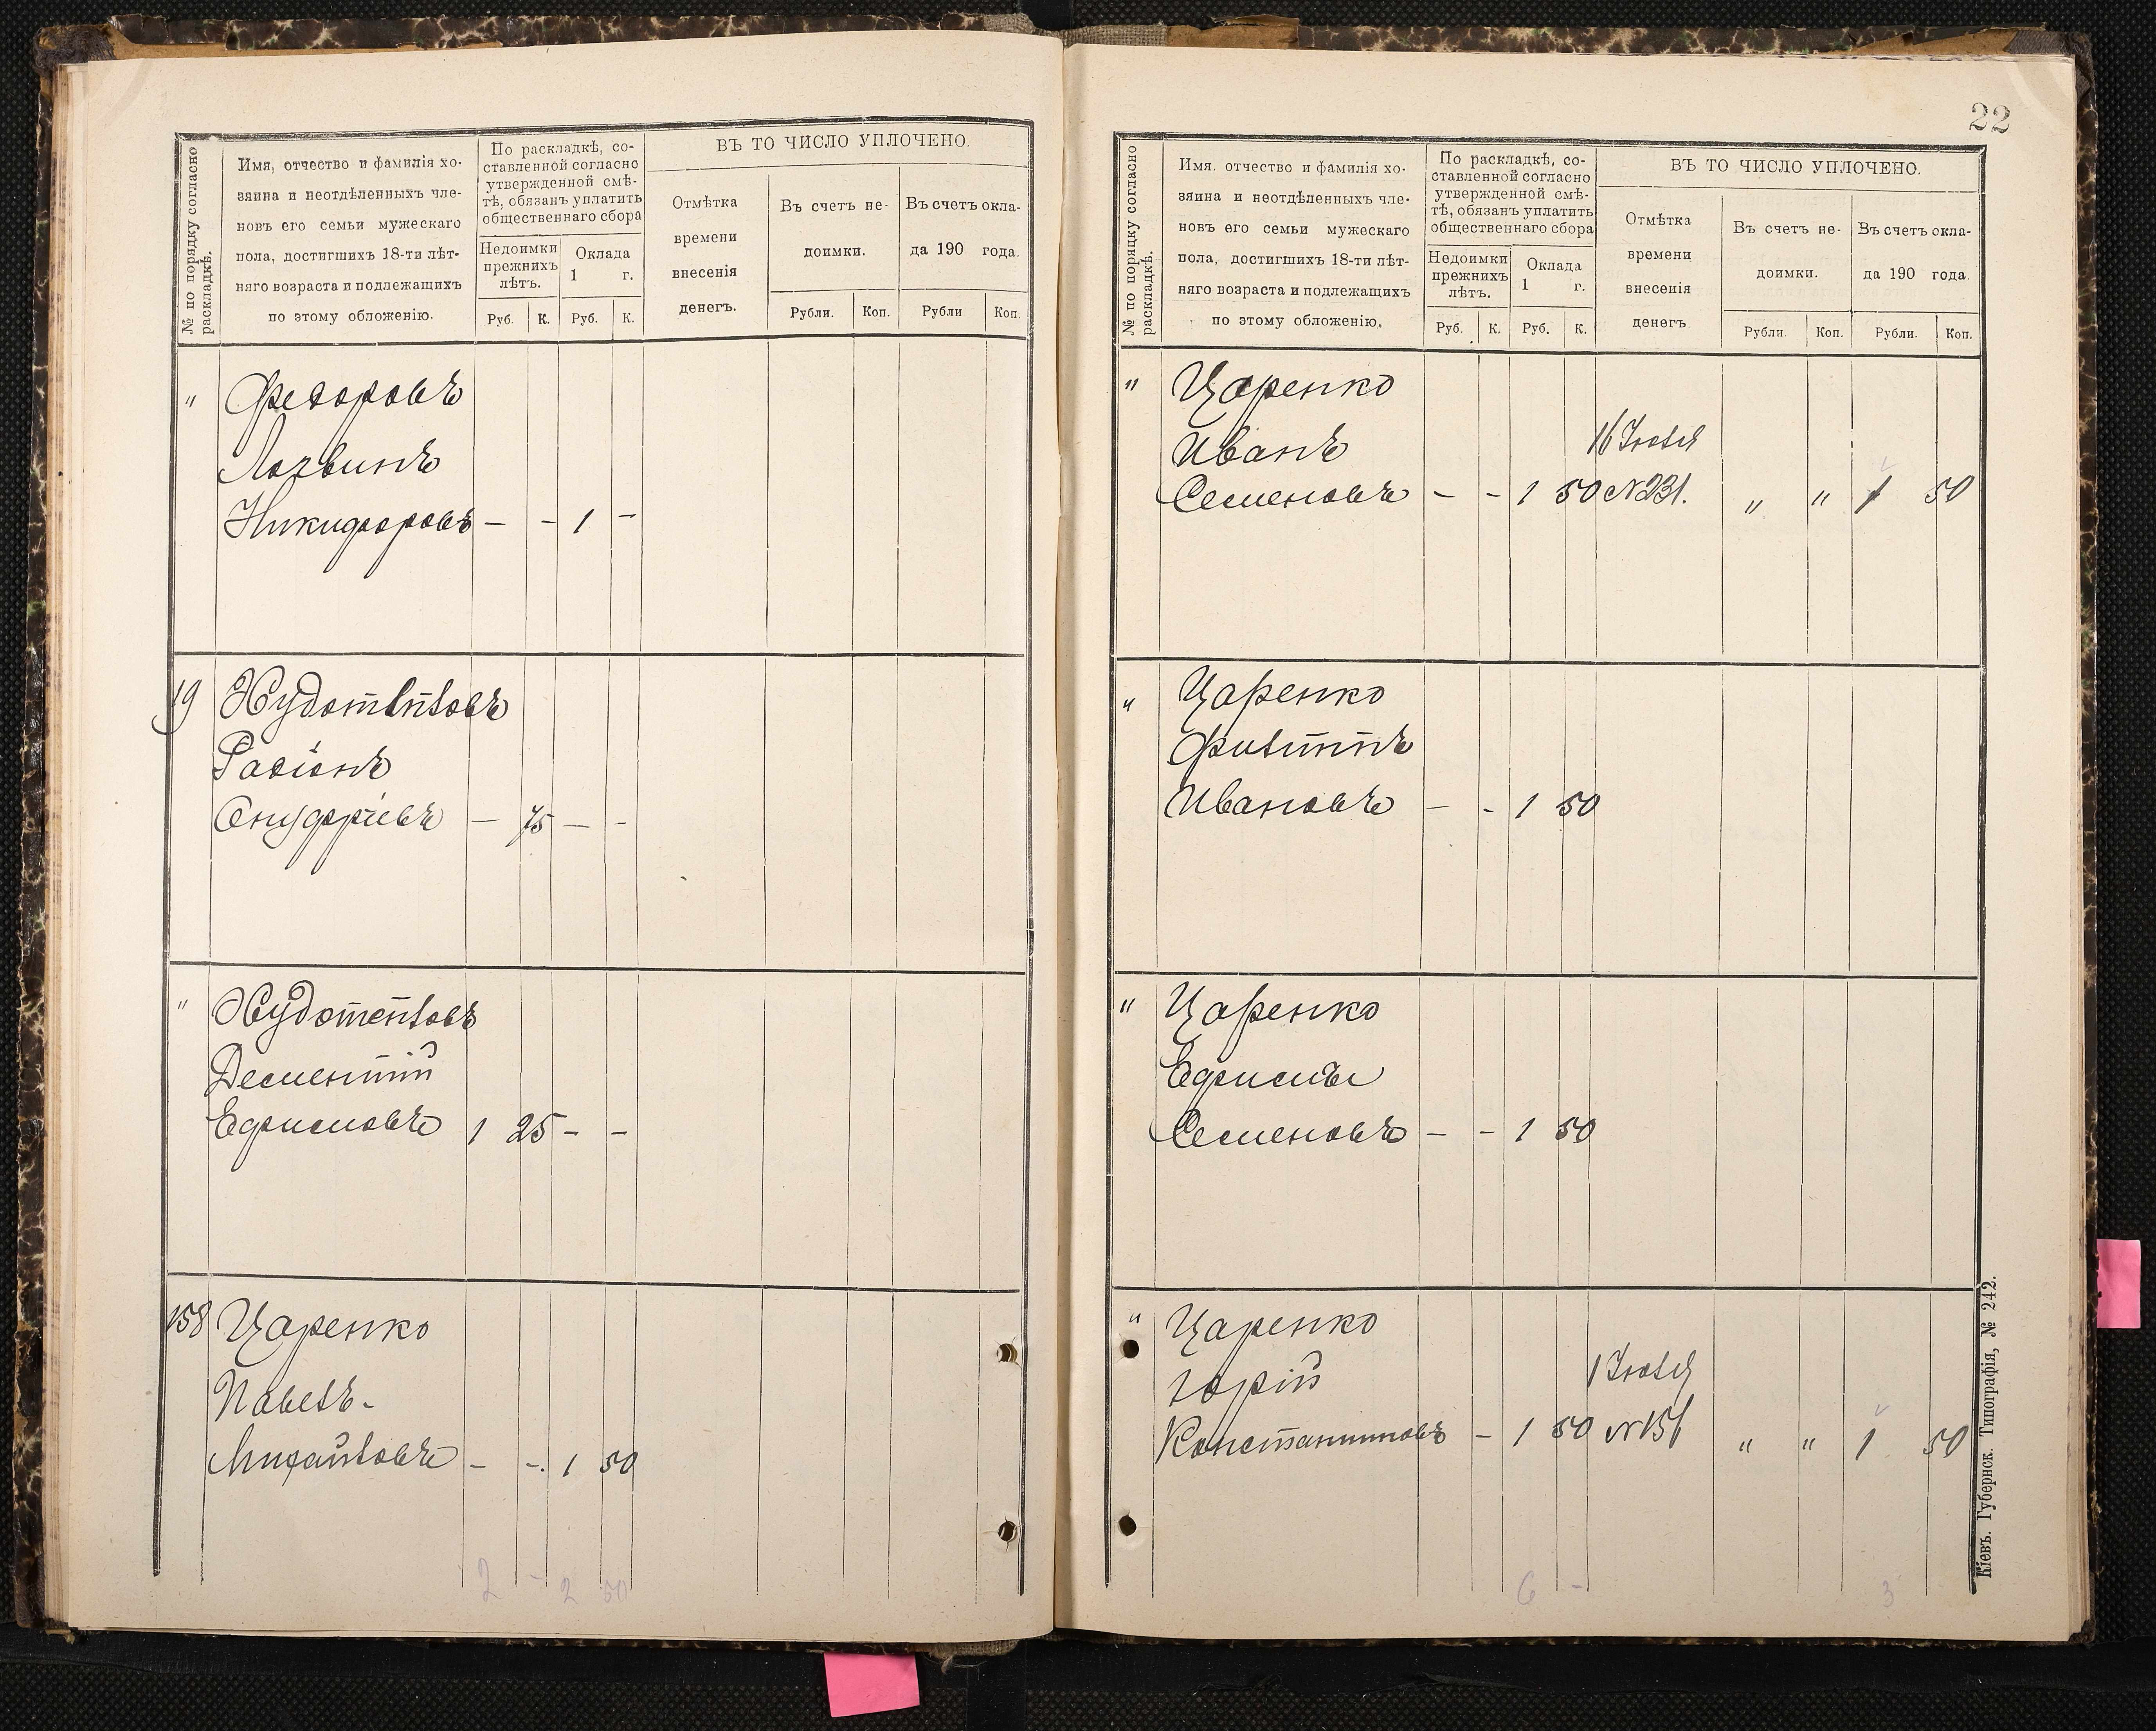 № по порядку согласно
раскладкѣ.
Имя, отчество и фамилія хо-
зяина и неотдѣленныхъ чле-
новъ его семьи мужескаго
пола, достигшихъ 18-ти лѣт-
няго возраста и подлежащихъ
по этому обложенію.
По раскладкѣ, со-
ставленной согласно
утвержденной смѣ-
тѣ, обязанъ уплатить
общественнаго сбора
Недоимки
прежнихъ
лѣтъ.
Оклада
1 г.
Руб. К. Руб. К.
ВЪ ТО ЧИСЛО УПЛОЧЕНО.
Отмѣтка
времени
внесенія
денегъ.
Въ счетъ не-
доимки.
Въ счетъ окла-
да 190 года.
Рубли. Коп. Рубли Коп.
" Федоровъ
Логвинъ
Никифоровъ — - 1 -
19
Радіонъ
Онуфріевъ — 75 — -
"
Дементій
Ефимовъ 1 25 - -
158 Царенко
Павелъ -
Михайловъ - - 1 50
2 - 2 50
22
№ по порядку согласно
раскладкѣ.
Имя, отчество и фамилія хо-
зяина и неотдѣленныхъ чле-
новъ его семьи мужескаго
пола, достигшихъ 18-ти лѣт-
няго возраста и подлежащихъ
по этому обложенію.
По раскладкѣ, со-
ставленной согласно
утвержденной смѣ-
тѣ, обязанъ уплатить
общественнаго сбора
Недоимки
прежнихъ
лѣтъ.
Оклада
1 г.
Руб. К. Руб. К.
ВЪ ТО ЧИСЛО УПЛОЧЕНО.
Отмѣтка
времени
внесенія
денегъ.
Въ счетъ не-
доимки.
Въ счетъ окла-
да 190 года.
Рубли. Коп. Рубли. Коп.
" Царенко
Иванъ 16 Іюля
Семеновъ - - 1 50 №231. " " 1 50
" Царенко
Филиппъ
Ивановъ - - 1 50
" Царенко
Ефимъ
Семеновъ - - 1 50
" Царенко
Юрій 1 Іюля
Константиновъ - 1 50 №156 " " 1 50
6 - 3
Кіевъ. Губернск. Типографія, № 242.